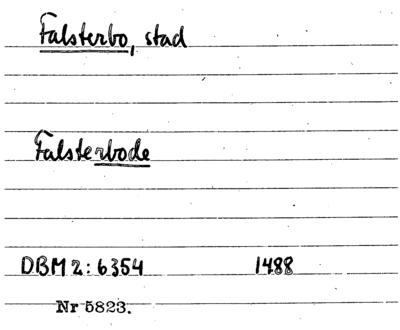 Falsterbo, stad
Falsterbode
DBM 2:6354 1488
Nr 5823.